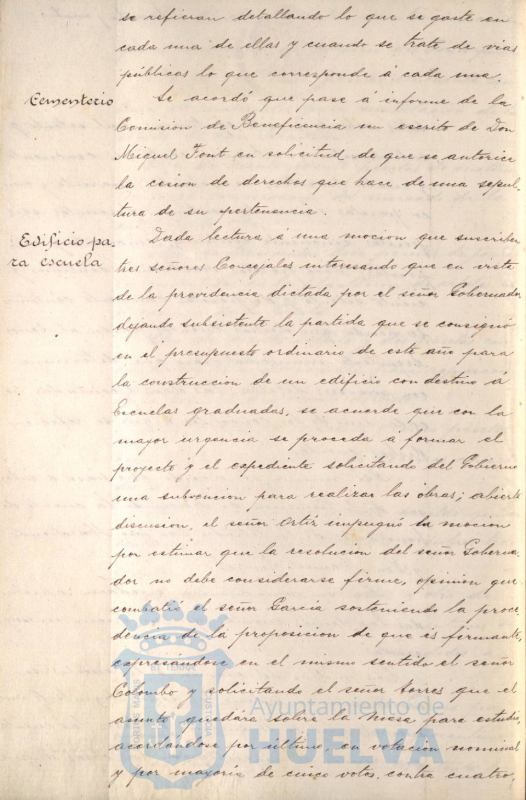 se refieran detallando lo que se gaste en
cada una de ellas y cuando se trate de vias
públicas lo que corresponde á cada una.
Cementerio
Se acordó que pase á informe de la
Comision de Beneficencia un escrito de Don
Miguel Font en solicitud de que se autorice
la cesion de derechos que hace de una sepul-
tura de su pertenencia.
Edificio pa
ra escuela
Dada lectura á una mocion que suscriben
tres señores Concejales interesando que en vista
de la providencia dictada por el señor Gobernador
dejando subsistente la partida que se consignó
en el presupuesto ordinario de este año para
la construccion de un edificio con destino á
Escuelas graduadas, se acuerde que con la
mayor urgencia se proceda á formar el
proyecto y el expediente solicitando del Gobierno
una subvencion para realizar las obras; abierta
discusion, el señor Ortiz impugnó la mocion
por estimar que la resolucion del señor Goberna-
dor no debe considerarse firme, opinion que
combatió el señor García sosteniendo la proce
dencia de la proposicion de que es firmante,
expresándose en el mismo sentido el señor
Colombo y solicitando el señor Torres que el
asunto quedára sobre la mesa para estudio,
acordándose por último, en votacion nominal
y por mayoría de cinco votos, contra cuatro,
Ayuntamiento de
HUELVA